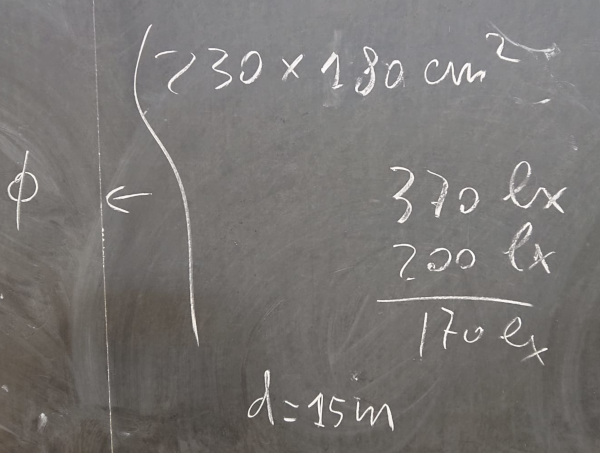 230 × 180 cm²
ϕ ←
370 lx
200 lx
170 lx
d = 15 m